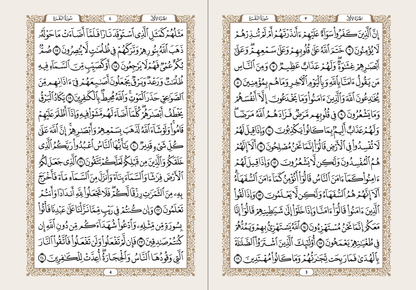 سُورَةُ البَقَرَةِ ٣ الجُزْءُ الأَوَّلُ
إِنَّ ٱلَّذِينَ كَفَرُوا۟ سَوَآءٌ عَلَيْهِمْ ءَأَنذَرْتَهُمْ أَمْ لَمْ تُنذِرْهُمْ
لَا يُؤْمِنُونَ ٦ خَتَمَ ٱللَّهُ عَلَىٰ قُلُوبِهِمْ وَعَلَىٰ سَمْعِهِمْ وَعَلَىٰٓ
أَبْصَٰرِهِمْ غِشَٰوَةٌ وَلَهُمْ عَذَابٌ عَظِيمٌ ٧ وَمِنَ ٱلنَّاسِ
مَن يَقُولُ ءَامَنَّا بِٱللَّهِ وَبِٱلْيَوْمِ ٱلْءَاخِرِ وَمَا هُم بِمُؤْمِنِينَ ٨
يُخَٰدِعُونَ ٱللَّهَ وَٱلَّذِينَ ءَامَنُوا۟ وَمَا يَخْدَعُونَ إِلَّآ أَنفُسَهُمْ
وَمَا يَشْعُرُونَ ٩ فِى قُلُوبِهِم مَّرَضٌ فَزَادَهُمُ ٱللَّهُ مَرَضًا
وَلَهُمْ عَذَابٌ أَلِيمٌۢ بِمَا كَانُوا۟ يَكْذِبُونَ ١٠ وَإِذَا قِيلَ لَهُمْ
لَا تُفْسِدُوا۟ فِى ٱلْأَرْضِ قَالُوٓا۟ إِنَّمَا نَحْنُ مُصْلِحُونَ ١١ أَلَآ إِنَّهُمْ
هُمُ ٱلْمُفْسِدُونَ وَلَٰكِن لَّا يَشْعُرُونَ ١٢ وَإِذَا قِيلَ لَهُمْ
ءَامِنُوا۟ كَمَآ ءَامَنَ ٱلنَّاسُ قَالُوٓا۟ أَنُؤْمِنُ كَمَآ ءَامَنَ ٱلسُّفَهَآءُ
أَلَآ إِنَّهُمْ هُمُ ٱلسُّفَهَآءُ وَلَٰكِن لَّا يَعْلَمُونَ ١٣ وَإِذَا لَقُوا۟
ٱلَّذِينَ ءَامَنُوا۟ قَالُوٓا۟ ءَامَنَّا وَإِذَا خَلَوْا۟ إِلَىٰ شَيَٰطِينِهِمْ قَالُوٓا۟ إِنَّا
مَعَكُمْ إِنَّمَا نَحْنُ مُسْتَهْزِءُونَ ١٤ ٱللَّهُ يَسْتَهْزِئُ بِهِمْ وَيَمُدُّهُمْ
فِى طُغْيَٰنِهِمْ يَعْمَهُونَ ١٥ أُو۟لَٰٓئِكَ ٱلَّذِينَ ٱشْتَرَوُا۟ ٱلضَّلَٰلَةَ
بِٱلْهُدَىٰ فَمَا رَبِحَت تِّجَٰرَتُهُمْ وَمَا كَانُوا۟ مُهْتَدِينَ ١٦
٣
الجُزْءُ الأَوَّلُ ٤ سُورَةُ البَقَرَةِ
مَثَلُهُمْ كَمَثَلِ ٱلَّذِى ٱسْتَوْقَدَ نَارًا فَلَمَّآ أَضَآءَتْ مَا حَوْلَهُۥ
ذَهَبَ ٱللَّهُ بِنُورِهِمْ وَتَرَكَهُمْ فِى ظُلُمَٰتٍ لَّا يُبْصِرُونَ ١٧ صُمٌّۢ
بُكْمٌ عُمْىٌ فَهُمْ لَا يَرْجِعُونَ ١٨ أَوْ كَصَيِّبٍ مِّنَ ٱلسَّمَآءِ فِيهِ
ظُلُمَٰتٌ وَرَعْدٌ وَبَرْقٌ يَجْعَلُونَ أَصَٰبِعَهُمْ فِىٓ ءَاذَانِهِم مِّنَ
ٱلصَّوَٰعِقِ حَذَرَ ٱلْمَوْتِ وَٱللَّهُ مُحِيطٌۢ بِٱلْكَٰفِرِينَ ١٩ يَكَادُ ٱلْبَرْقُ
يَخْطَفُ أَبْصَٰرَهُمْ كُلَّمَآ أَضَآءَ لَهُم مَّشَوْا۟ فِيهِ وَإِذَآ أَظْلَمَ عَلَيْهِمْ
قَامُوا۟ وَلَوْ شَآءَ ٱللَّهُ لَذَهَبَ بِسَمْعِهِمْ وَأَبْصَٰرِهِمْ إِنَّ ٱللَّهَ عَلَىٰ
كُلِّ شَىْءٍ قَدِيرٌ ٢٠ يَٰٓأَيُّهَا ٱلنَّاسُ ٱعْبُدُوا۟ رَبَّكُمُ ٱلَّذِى
خَلَقَكُمْ وَٱلَّذِينَ مِن قَبْلِكُمْ لَعَلَّكُمْ تَتَّقُونَ ٢١ ٱلَّذِى جَعَلَ لَكُمُ
ٱلْأَرْضَ فِرَٰشًا وَٱلسَّمَآءَ بِنَآءً وَأَنزَلَ مِنَ ٱلسَّمَآءِ مَآءً فَأَخْرَجَ
بِهِۦ مِنَ ٱلثَّمَرَٰتِ رِزْقًا لَّكُمْ فَلَا تَجْعَلُوا۟ لِلَّهِ أَندَادًا وَأَنتُمْ
تَعْلَمُونَ ٢٢ وَإِن كُنتُمْ فِى رَيْبٍ مِّمَّا نَزَّلْنَا عَلَىٰ عَبْدِنَا فَأْتُوا۟
بِسُورَةٍ مِّن مِّثْلِهِۦ وَٱدْعُوا۟ شُهَدَآءَكُم مِّن دُونِ ٱللَّهِ إِن
كُنتُمْ صَٰدِقِينَ ٢٣ فَإِن لَّمْ تَفْعَلُوا۟ وَلَن تَفْعَلُوا۟ فَٱتَّقُوا۟ ٱلنَّارَ
ٱلَّتِى وَقُودُهَا ٱلنَّاسُ وَٱلْحِجَارَةُ أُعِدَّتْ لِلْكَٰفِرِينَ ٢٤
٤